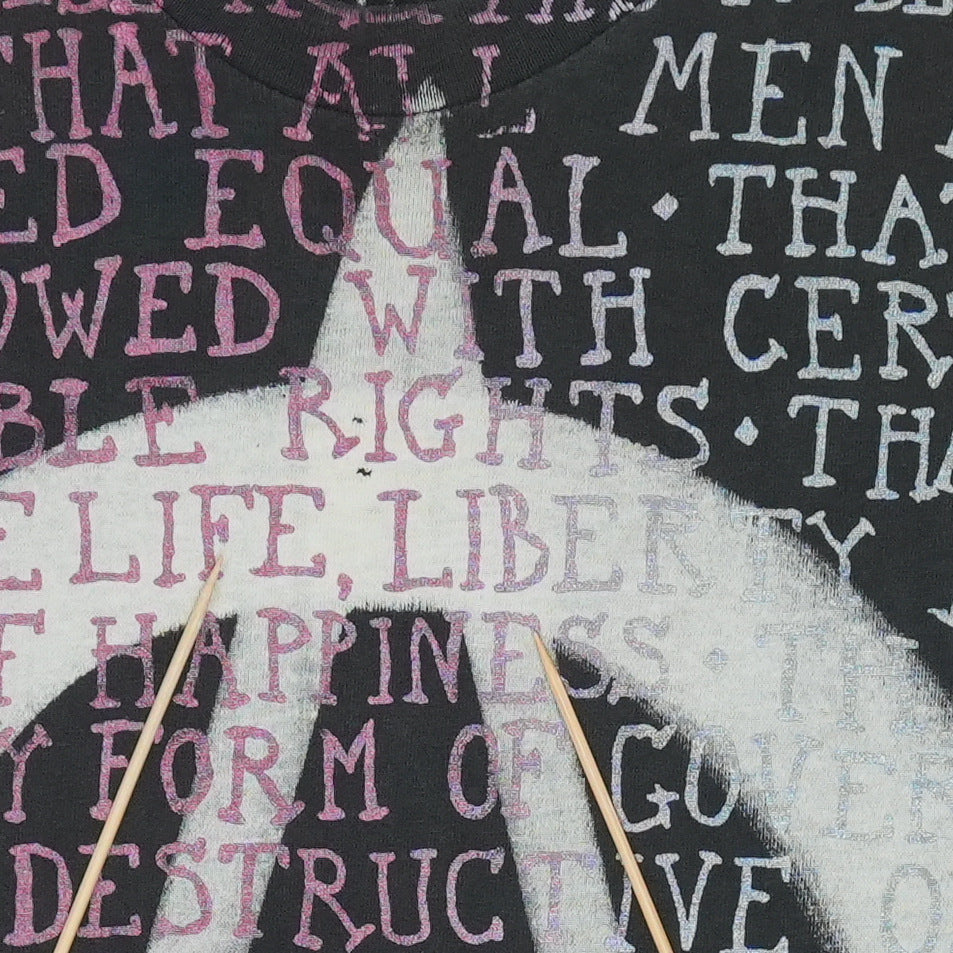 THAT ALL MEN
ED EQUAL · THAT
OWED WITH CER
BLE RIGHTS · THA
E LIFE, LIBERTY
F HAPPINESS · T
Y FORM OF GOVER
DESTRUCTIVE O